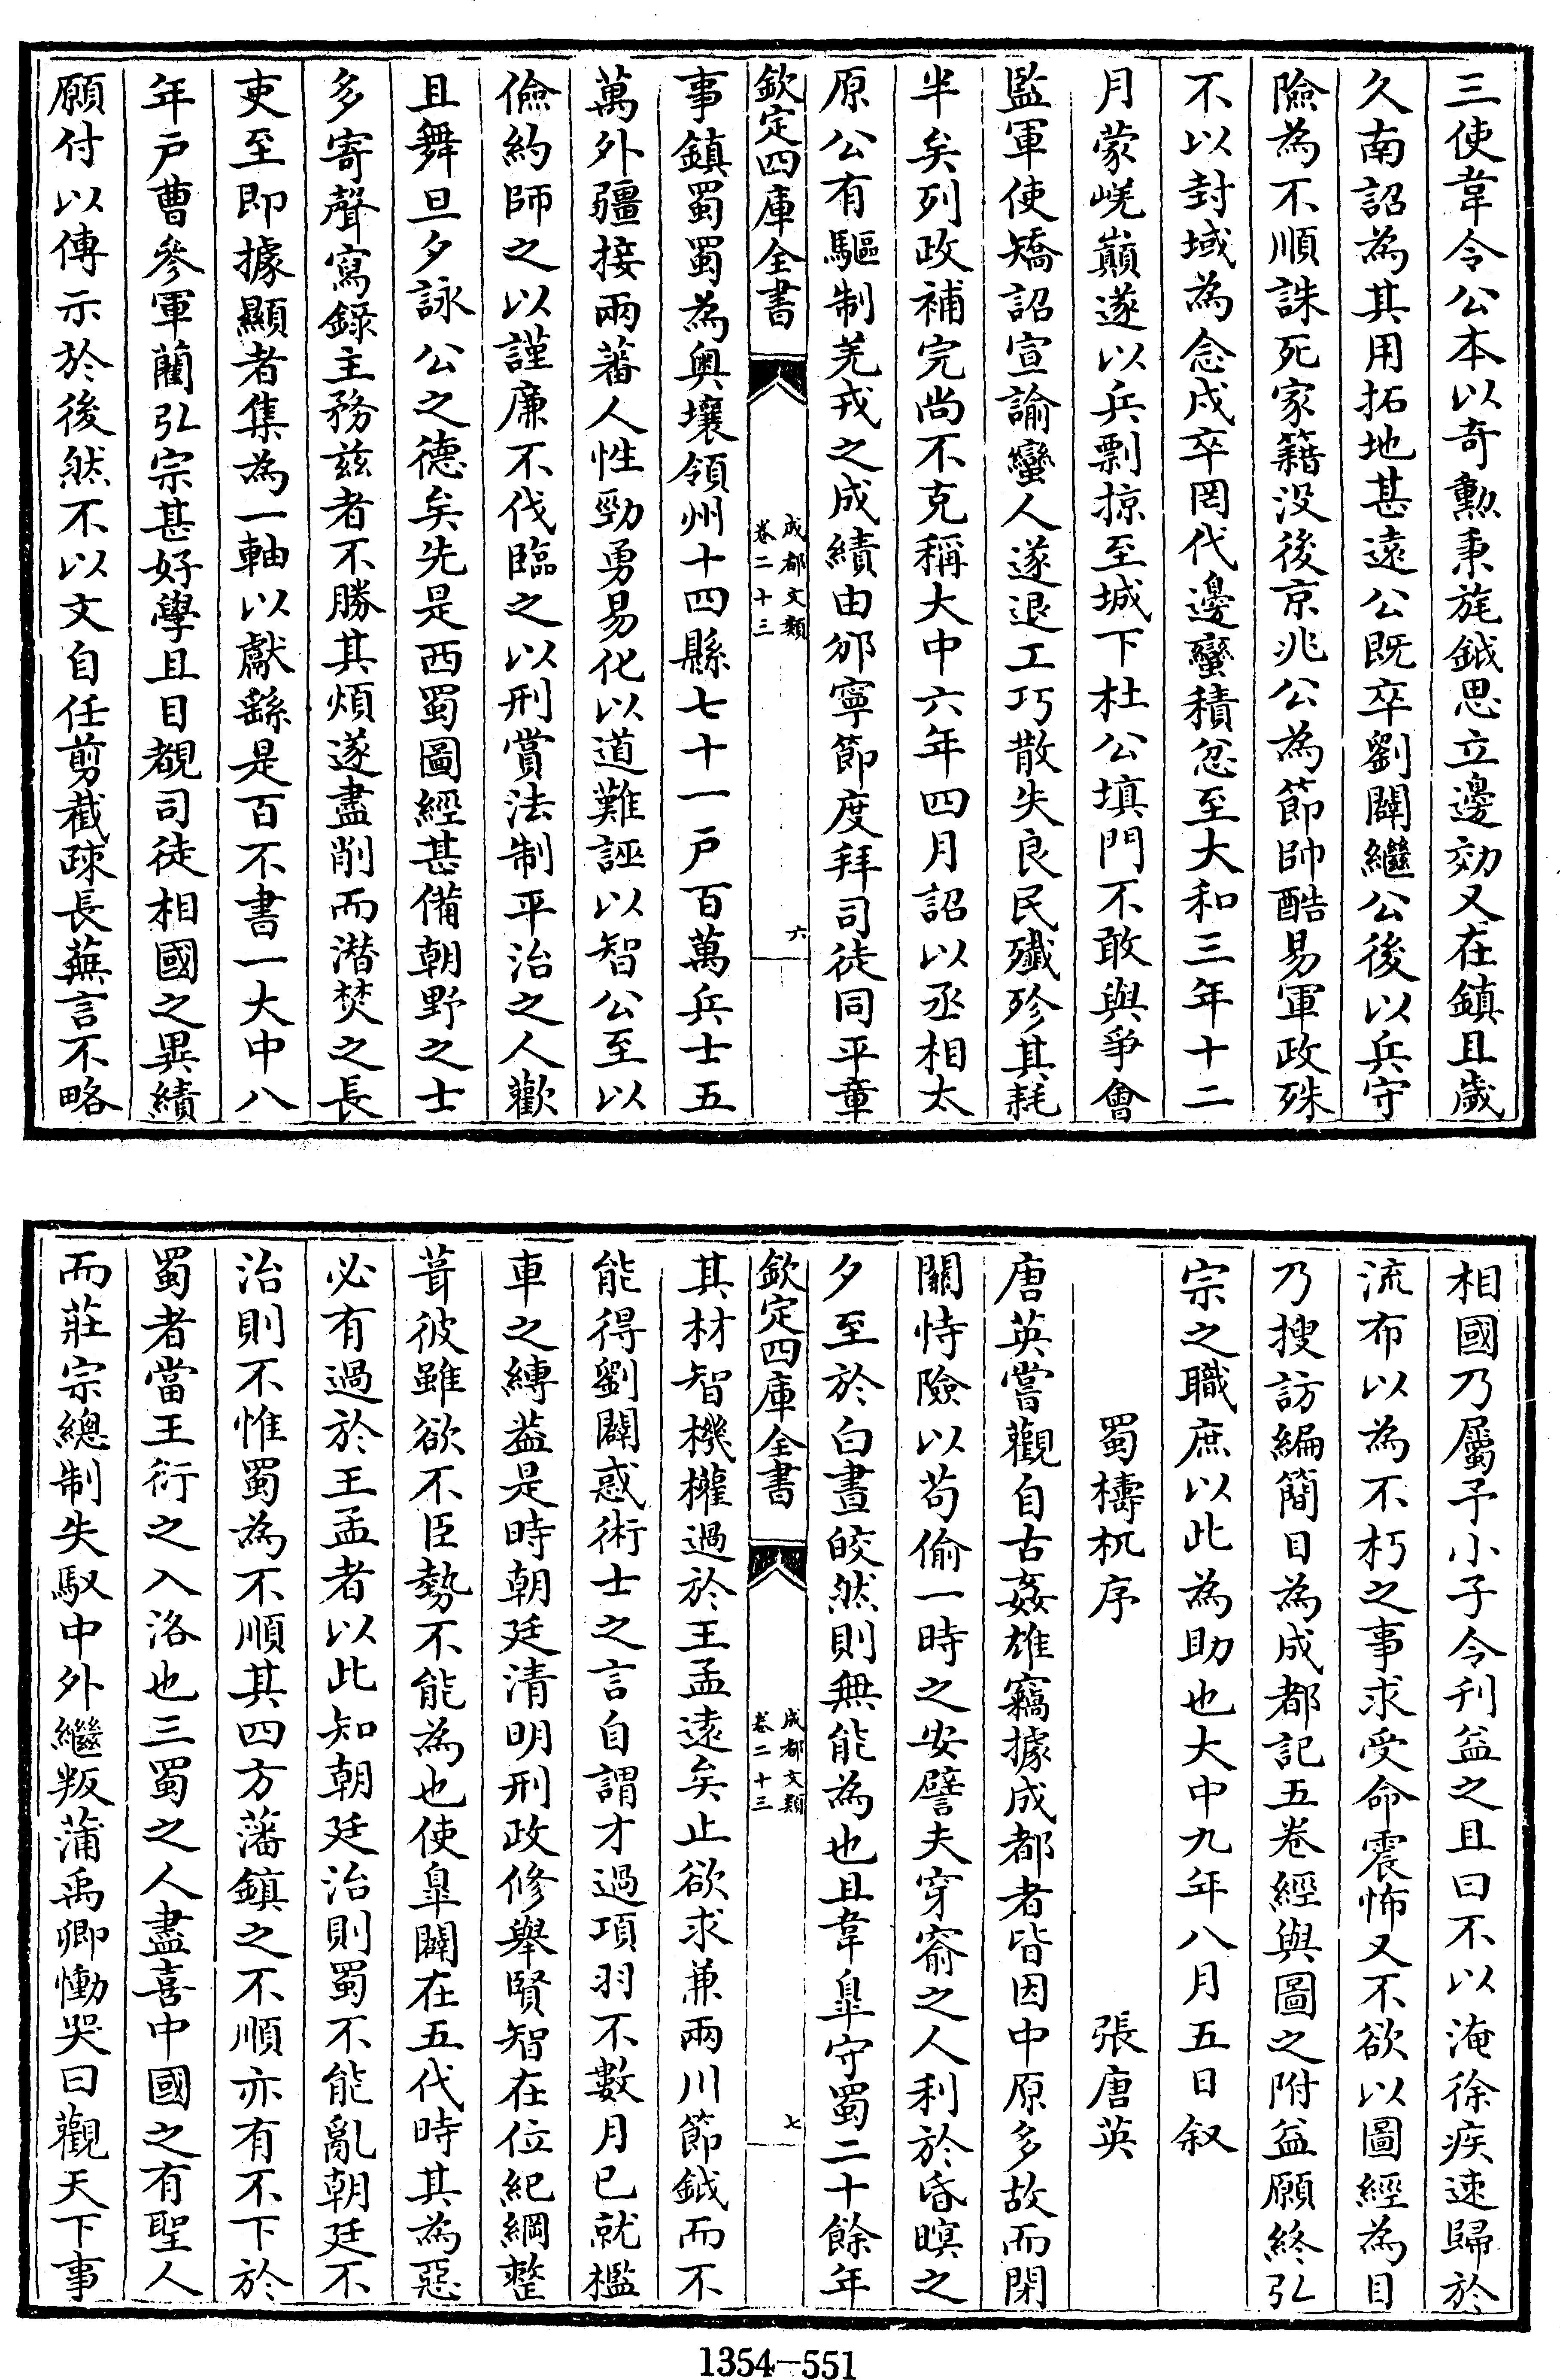 三使韋令公本以奇勲秉旄鉞思立邊効又在鎮且歲
久南詔為其用拓地甚遠公既卒劉闢繼公後以兵守
險為不順誅死家籍没後京兆公為節帥酷易軍政殊
不以封域為念戍卒罔代邊蠻積忿至大和三年十二
月蒙嵯巔遂以兵剽掠至城下杜公填門不敢與爭會
監軍使矯詔宣諭蠻人遂退工巧散失良民殲殄其耗
半矣列政補完尚不克稱大中六年四月詔以丞相太
原公有驅制羌戎之成績由邠寧節度拜司徒同平章
欽定四庫全書
成都文類
卷二十三
六
事鎮蜀蜀為奥壤領州十四縣七十一戸百萬兵士五
萬外疆接兩蕃人性勁勇易化以道難誣以智公至以
儉約師之以謹廉不伐臨之以刑賞法制平治之人歡
且舞旦夕詠公之德矣先是西蜀圖經甚備朝野之士
多寄聲寫錄主務兹者不勝其煩遂盡削而潜焚之長
吏至即據顯者集為一軸以獻繇是百不書一大中八
年戸曹參軍藺弘宗甚好學且目覩司徒相國之異績
願付以傳示於後然不以文自任剪截疎長蕪言不略
相國乃屬予小子令刋益之且曰不以淹徐疾速歸於
流布以為不朽之事求受命震怖又不欲以圖經為目
乃搜訪編簡目為成都記五卷經與圖之附益願終弘
宗之職庶以此為助也大中九年八月五日叙
蜀檮杌序　張唐英
唐英嘗觀自古姦雄竊據成都者皆因中原多故而閉
關恃險以苟偷一時之安譬夫穿窬之人利於昏暝之
夕至於白晝皎然則無能為也且韋臯守蜀二十餘年
欽定四庫全書
成都文類
卷二十三
七
其材智機權過於王孟遠矣止欲求兼兩川節鉞而不
能得劉闢惑術士之言自謂才過項羽不數月已就檻
車之縛葢是時朝廷清明刑政修舉賢智在位紀綱整
葺彼雖欲不臣勢不能為也使臯闢在五代時其為惡
必有過於王孟者以此知朝廷治則蜀不能亂朝廷不
治則不惟蜀為不順其四方藩鎮之不順亦有不下於
蜀者當王衍之入洛也三蜀之人盡喜中國之有聖人
而莊宗總制失馭中外繼叛蒲禹卿慟哭曰觀天下事
1354—551